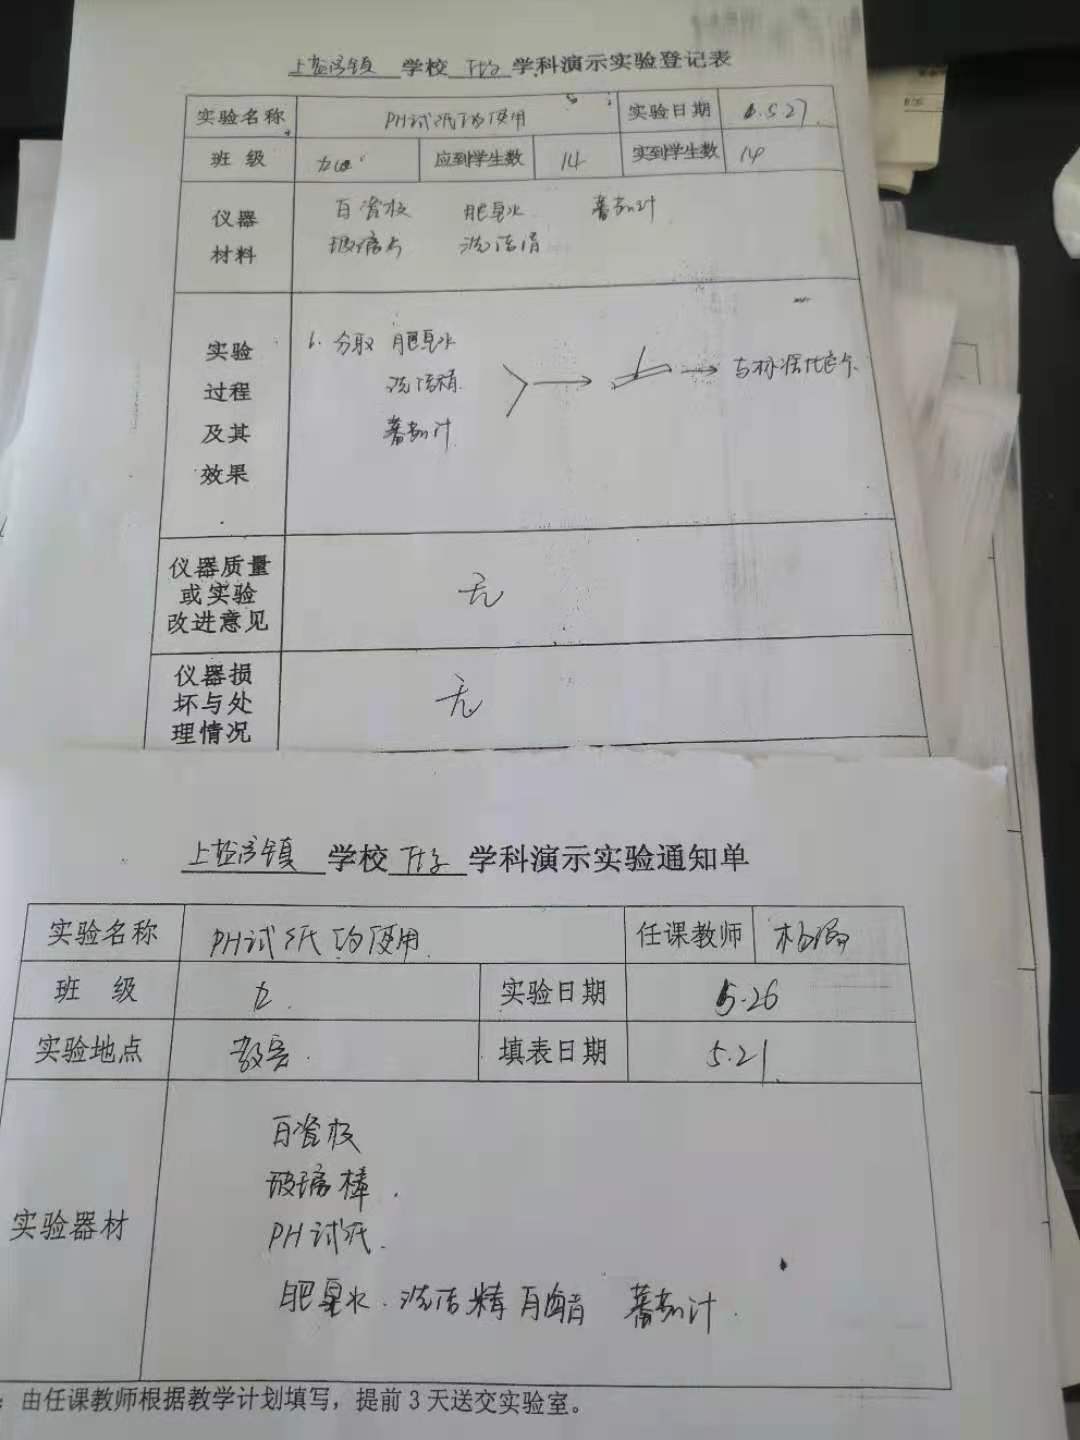 学校 学科演示实验登记表
实验名称 PH试纸的使用 实验日期 5.27.
班级 应到学生数 14 实到学生数 14
仪器材料
白瓷板 肥皂水 蕃茄汁
玻璃片 洗洁精
实验过程及其效果
1. 分取 肥皂水
洗洁精
蕃茄汁
与标准比色卡
仪器质量或实验改进意见 无
仪器损坏与处理情况 无
学校 学科演示实验通知单
实验名称 PH试纸的使用 任课教师
班级 九. 实验日期 5.26
实验地点 教室. 填表日期 5.21.
实验器材
白瓷板
玻璃棒.
PH试纸.
肥皂水.洗洁精 白醋 蕃茄汁.
：由任课教师根据教学计划填写，提前3天送交实验室。